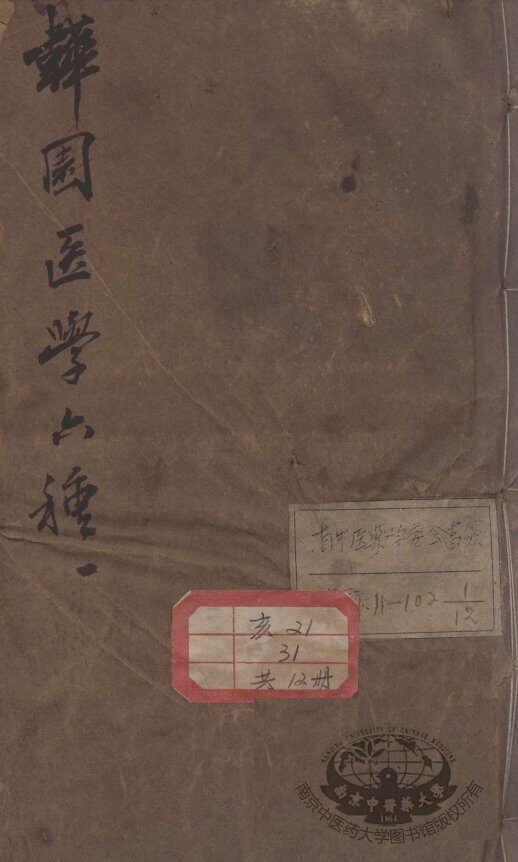 韡園医學六種 一
11—102 1/12
亥 21
31
共 12 册
NANJING UNIVERSITY OF CHINESE MEDICINE
南京中醫藥大學
1954
南京中医药大学图书馆版权所有